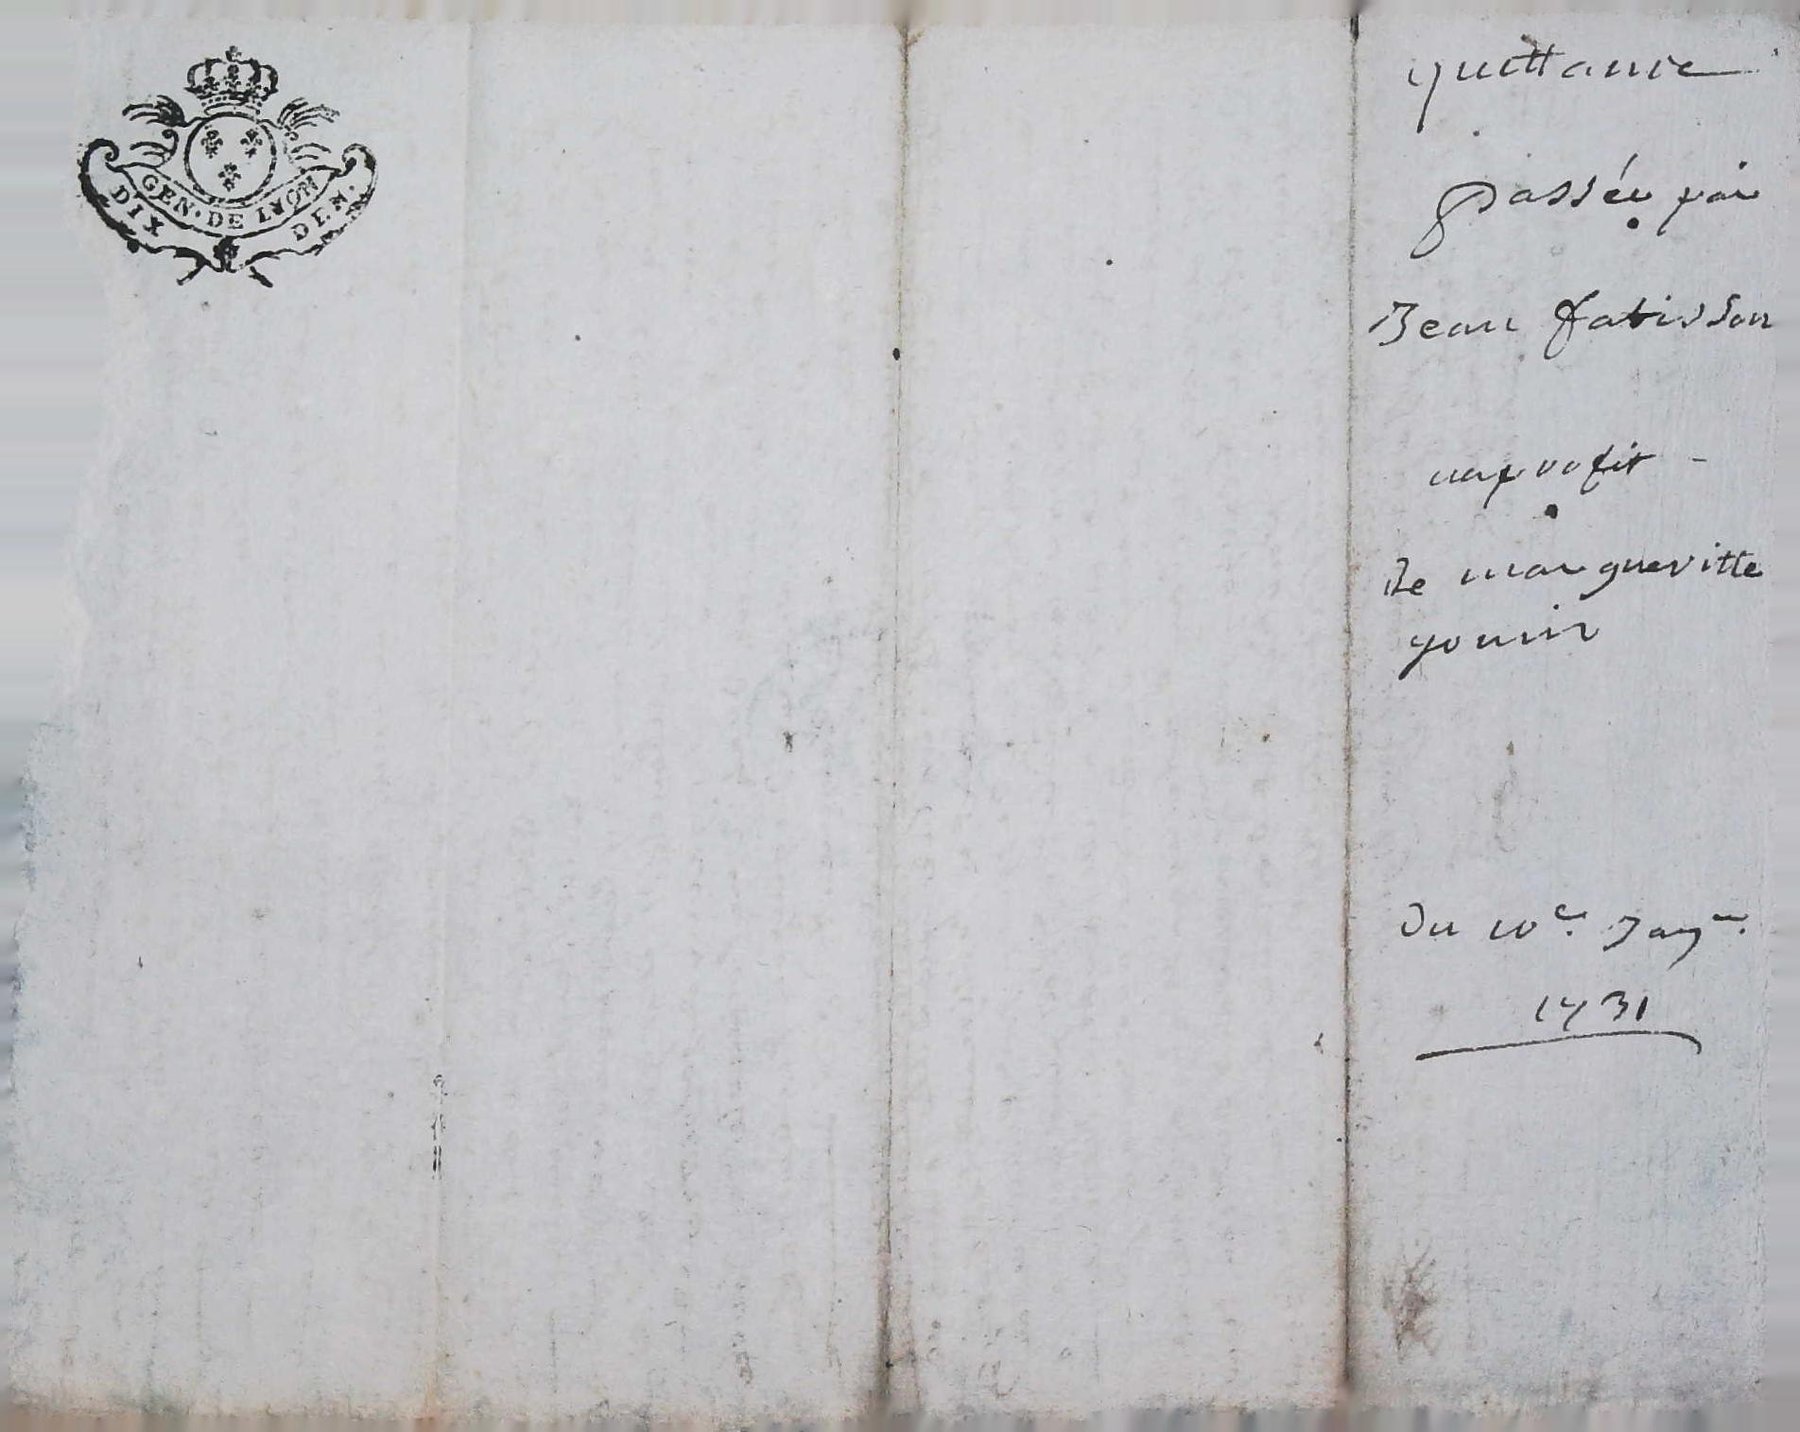 GEN. DE LYON
DIX DEN.
quittance
passée par
Jean fatisson
au profit -
De margueritte
gonin
Du 10e. Janv.
1731